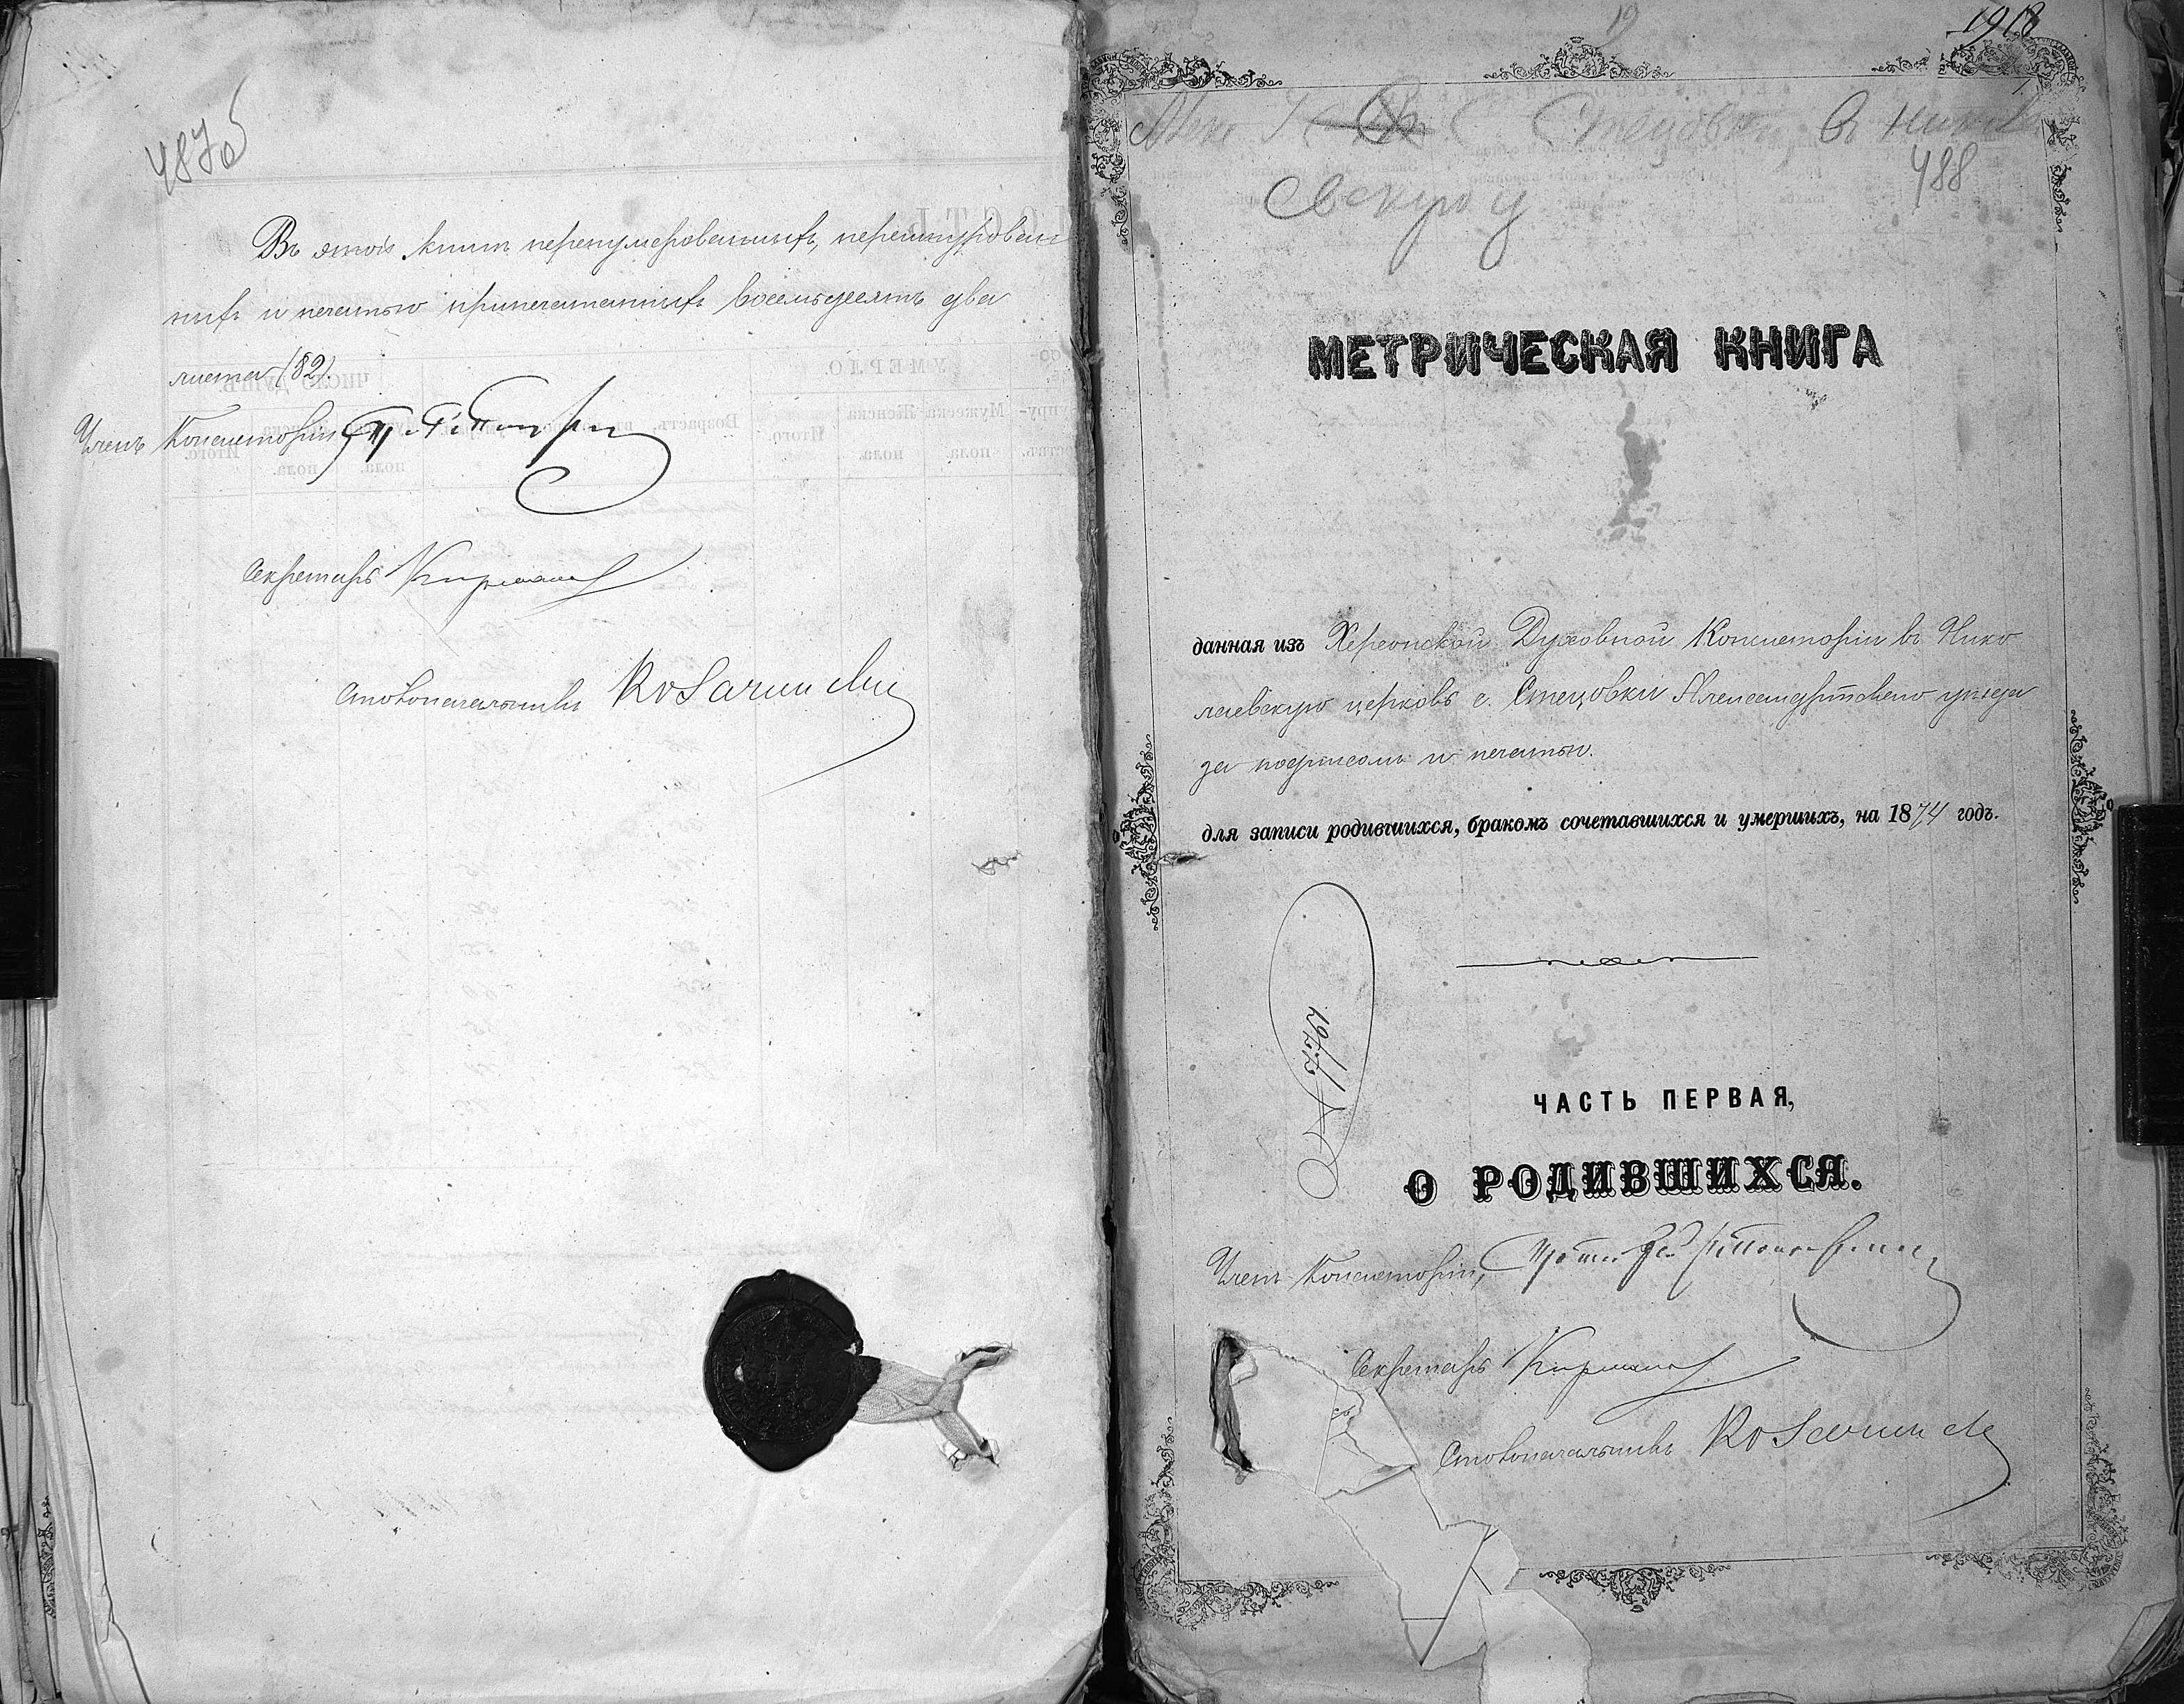 487 об
Въ этой книгѣ перенумерованныхъ, перешнурован
ныхъ и печатью припечатанныхъ восемьдесятъ два
листа (82).
Членъ Консисторіи
Секретарь
Столоначальникъ
19
1918
Мет с. Стецовки, в Никола
488
евскую ц
МЕТРИЧЕСКАЯ КНИГА
данная изъ Херсонской Духовной Консисторіи въ Нико
лаевскую церковь с. Стецовки Александрійскаго уѣзда
за подписомъ и печатью.
для записи родившихся, бракомъ сочетавшихся и умершихъ, на 1874 годъ.
ЧАСТЬ ПЕРВАЯ,
О РОДИВШИХСЯ.
Членъ Консисторіи,
Секретарь
Столоначальникъ